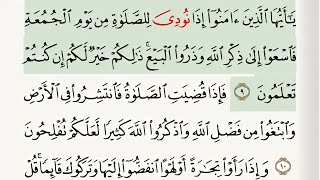 يَٰٓأَيُّهَا ٱلَّذِينَ ءَامَنُوٓا۟ إِذَا نُودِىَ لِلصَّلَوٰةِ مِن يَوْمِ ٱلْجُمُعَةِ
فَٱسْعَوْا۟ إِلَىٰ ذِكْرِ ٱللَّهِ وَذَرُوا۟ ٱلْبَيْعَ ۚ ذَٰلِكُمْ خَيْرٌ لَّكُمْ إِن كُنتُمْ
تَعْلَمُونَ ٩ فَإِذَا قُضِيَتِ ٱلصَّلَوٰةُ فَٱنتَشِرُوا۟ فِى ٱلْأَرْضِ
وَٱبْتَغُوا۟ مِن فَضْلِ ٱللَّهِ وَٱذْكُرُوا۟ ٱللَّهَ كَثِيرًا لَّعَلَّكُمْ تُفْلِحُونَ
١٠ وَإِذَا رَأَوْا۟ تِجَٰرَةً أَوْ لَهْوًا ٱنفَضُّوٓا۟ إِلَيْهَا وَتَرَكُوكَ قَآئِمًا ۚ قُلْ